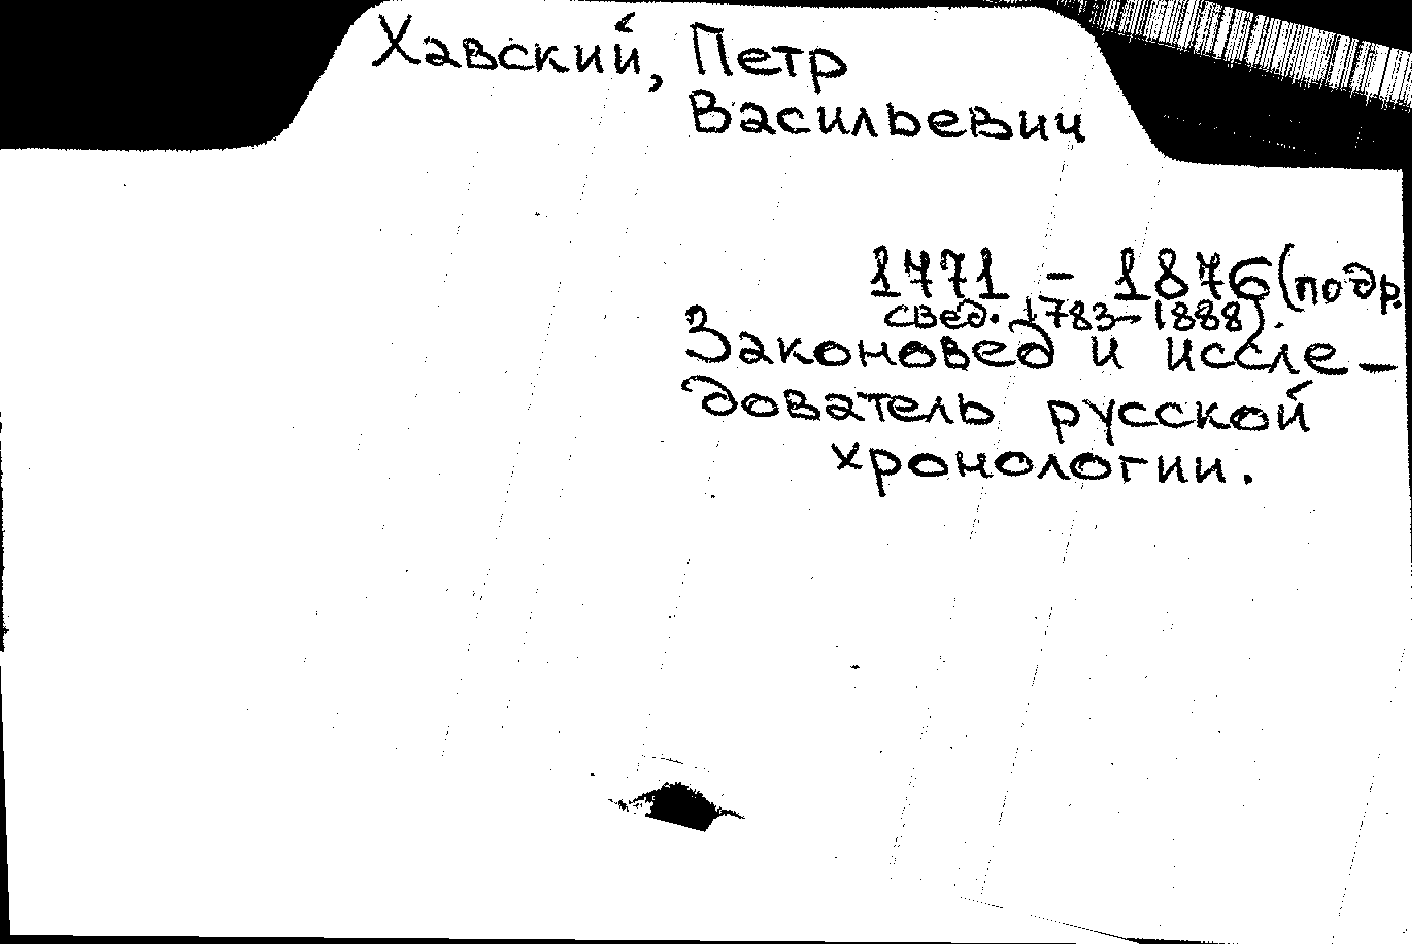 Хавский, Петр
Васильевич
1771 - 1876 (подр.
свед. 1783-1888).
Законовед и иссле-
дователь русской
хронологии.